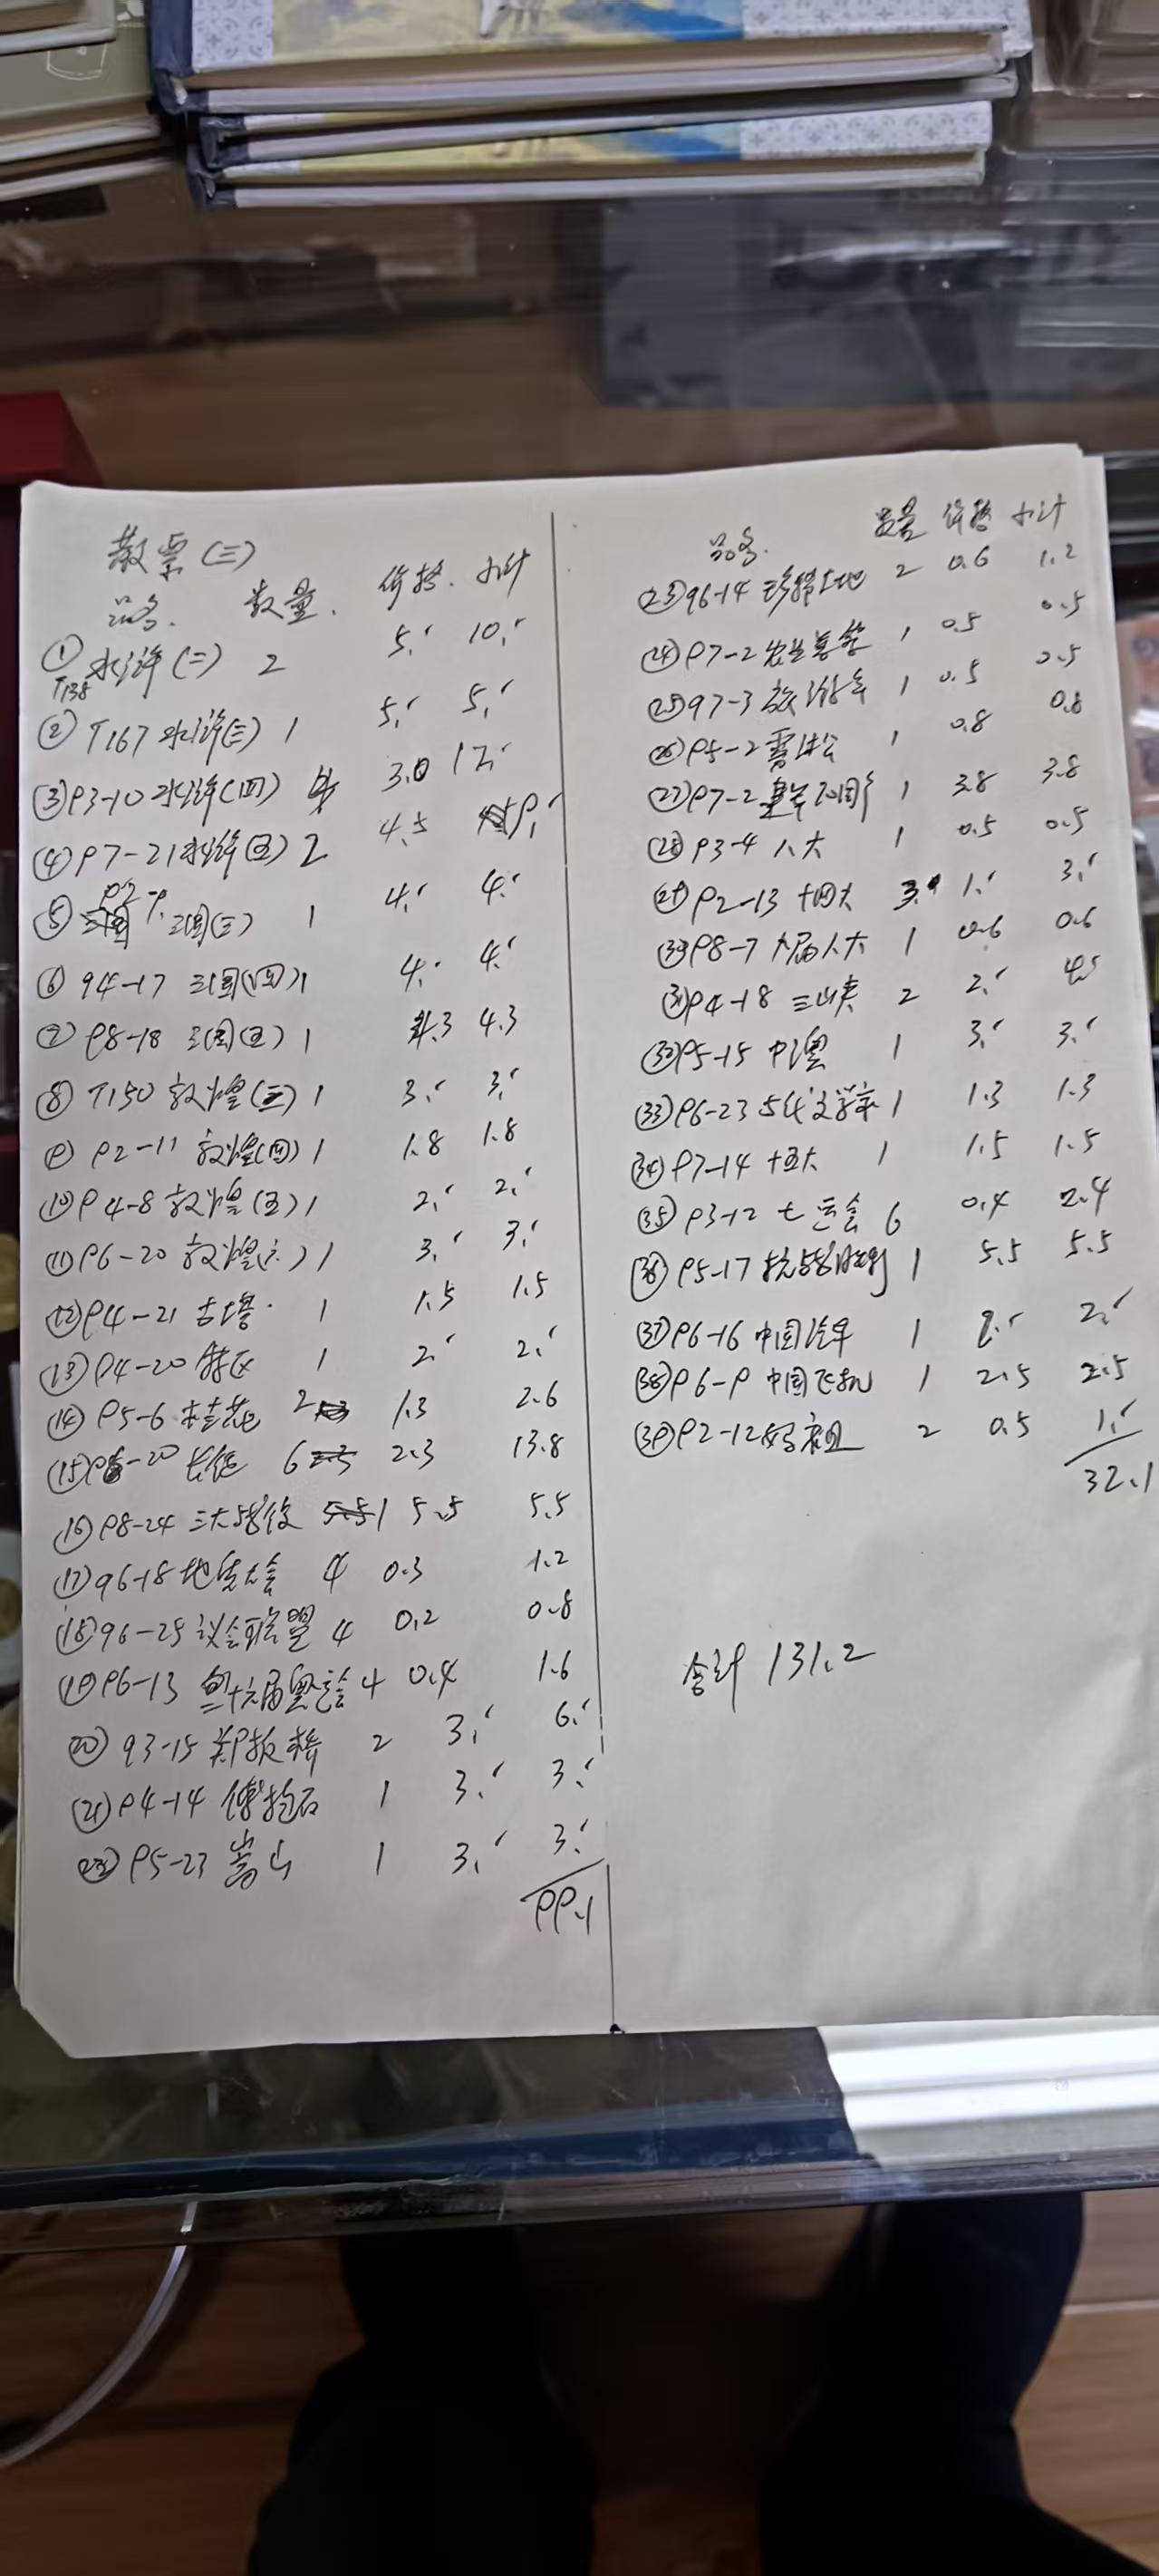 散票(三)
品名. 数量. 价格. 小计
① T138 水浒(二) 2 5.- 10.-
② T167 水浒(三) 1 5.- 5.-
③ 93-10 水浒(四) 4 3.0 12.-
④ 97-21 水浒(五) 2 4.5 9.-
⑤ 92-9. 三国(三) 1 4.- 4.-
⑥ 94-17 三国(四) 1 4.- 4.-
⑦ 98-18 三国(五) 1 4.3 4.3
⑧ T150 敦煌(三) 1 3.- 3.-
⑨ 92-11 敦煌(四) 1 1.8 1.8
⑩ 94-8 敦煌(五) 1 2.- 2.-
⑪ 96-20 敦煌(六) 1 3.- 3.-
⑫ 94-21 古塔. 1 1.5 1.5
⑬ 94-20 特区 1 2.- 2.-
⑭ 95-6 桂花 2 1.3 2.6
⑮ 94-20 长征 6 2.3 13.8
⑯ 98-24 三大战役 1 5.5 5.5
⑰ 96-18 地质大会 4 0.3 1.2
⑱ 96-25 议会联盟 4 0.2 0.8
⑲ 96-13 二十六届奥运会 4 0.4 1.6
⑳ 93-15 郑板桥 2 3.- 6.-
㉑ 94-14 傅抱石 1 3.- 3.-
㉒ 95-23 嵩山 1 3.- 3.-
99.1
品名. 数量 价格 小计
㉓ 96-14 珍惜土地 2 0.6 1.2
㉔ 97-2 1 0.5 0.5
㉕ 97-3 旅游年 1 0.5 0.5
㉖ 95-2 雪松 1 0.8 0.8
㉗ 97-2 周年 1 3.8 3.8
㉘ 93-4 八大 1 0.5 0.5
㉙ 92-13 十四大 3 1.- 3.-
㉚ 98-7 九届人大 1 0.6 0.6
㉛ 94-18 三峡 2 2.-
㉜ 95-15 中澳 1 3.- 3.-
㉝ 96-23 文学家 1 1.3 1.3
㉞ 97-14 十五大 1 1.5 1.5
㉟ 93-12 七运会 6 0.4 2.4
㊱ 95-17 抗战胜利 1 5.5 5.5
㊲ 96-16 中国汽车 1 2.- 2.-
㊳ 96-9 中国飞机 1 2.5 2.5
㊴ 92-12 妈祖 2 0.5 1.-
32.1
合计 131.2